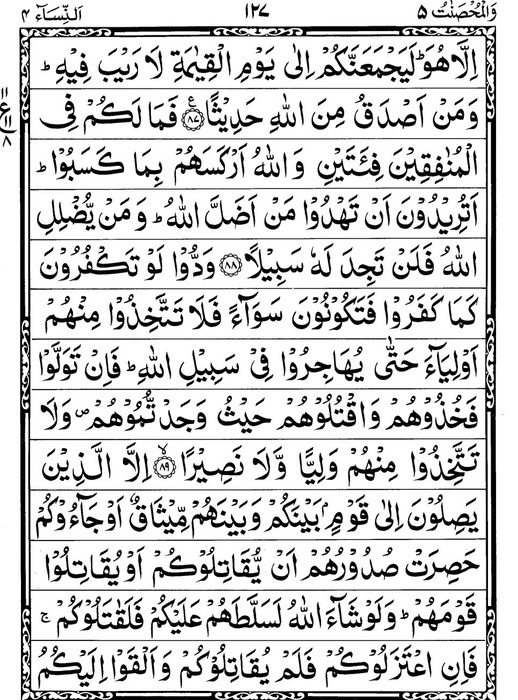 وَالْمُحْصَنٰتُ ٥ ١٢٧ اَلنِّسَآء ٤
اِلَّا هُوَ ؕ لَيَجْمَعَنَّكُمْ اِلٰى يَوْمِ الْقِيٰمَةِ لَا رَيْبَ فِيْهِ ؕ
وَمَنْ اَصْدَقُ مِنَ اللّٰهِ حَدِيْثًا ﴿٨٧﴾ ع فَمَا لَكُمْ فِى
الْمُنٰفِقِيْنَ فِئَتَيْنِ وَاللّٰهُ اَرْكَسَهُمْ بِمَا كَسَبُوْا ؕ
اَتُرِيْدُوْنَ اَنْ تَهْدُوْا مَنْ اَضَلَّ اللّٰهُ ؕ وَمَنْ يُّضْلِلِ
اللّٰهُ فَلَنْ تَجِدَ لَهٗ سَبِيْلًا ﴿٨٨﴾ وَدُّوْا لَوْ تَكْفُرُوْنَ
كَمَا كَفَرُوْا فَتَكُوْنُوْنَ سَوَآءً فَلَا تَتَّخِذُوْا مِنْهُمْ
اَوْلِيَآءَ حَتّٰى يُهَاجِرُوْا فِىْ سَبِيْلِ اللّٰهِ ؕ فَاِنْ تَوَلَّوْا
فَخُذُوْهُمْ وَاقْتُلُوْهُمْ حَيْثُ وَجَدْتُّمُوْهُمْ ۪ وَلَا
تَتَّخِذُوْا مِنْهُمْ وَلِيًّا وَّلَا نَصِيْرًا ﴿٨٩﴾ ۙ اِلَّا الَّذِيْنَ
يَصِلُوْنَ اِلٰى قَوْمٍۭ بَيْنَكُمْ وَبَيْنَهُمْ مِّيْثَاقٌ اَوْ جَآءُوْكُمْ
حَصِرَتْ صُدُوْرُهُمْ اَنْ يُّقَاتِلُوْكُمْ اَوْ يُقَاتِلُوْا
قَوْمَهُمْ ؕ وَلَوْ شَآءَ اللّٰهُ لَسَلَّطَهُمْ عَلَيْكُمْ فَلَقٰتَلُوْكُمْ ۚ
فَاِنِ اعْتَزَلُوْكُمْ فَلَمْ يُقَاتِلُوْكُمْ وَاَلْقَوْا اِلَيْكُمُ
١١
ع
١١
٨